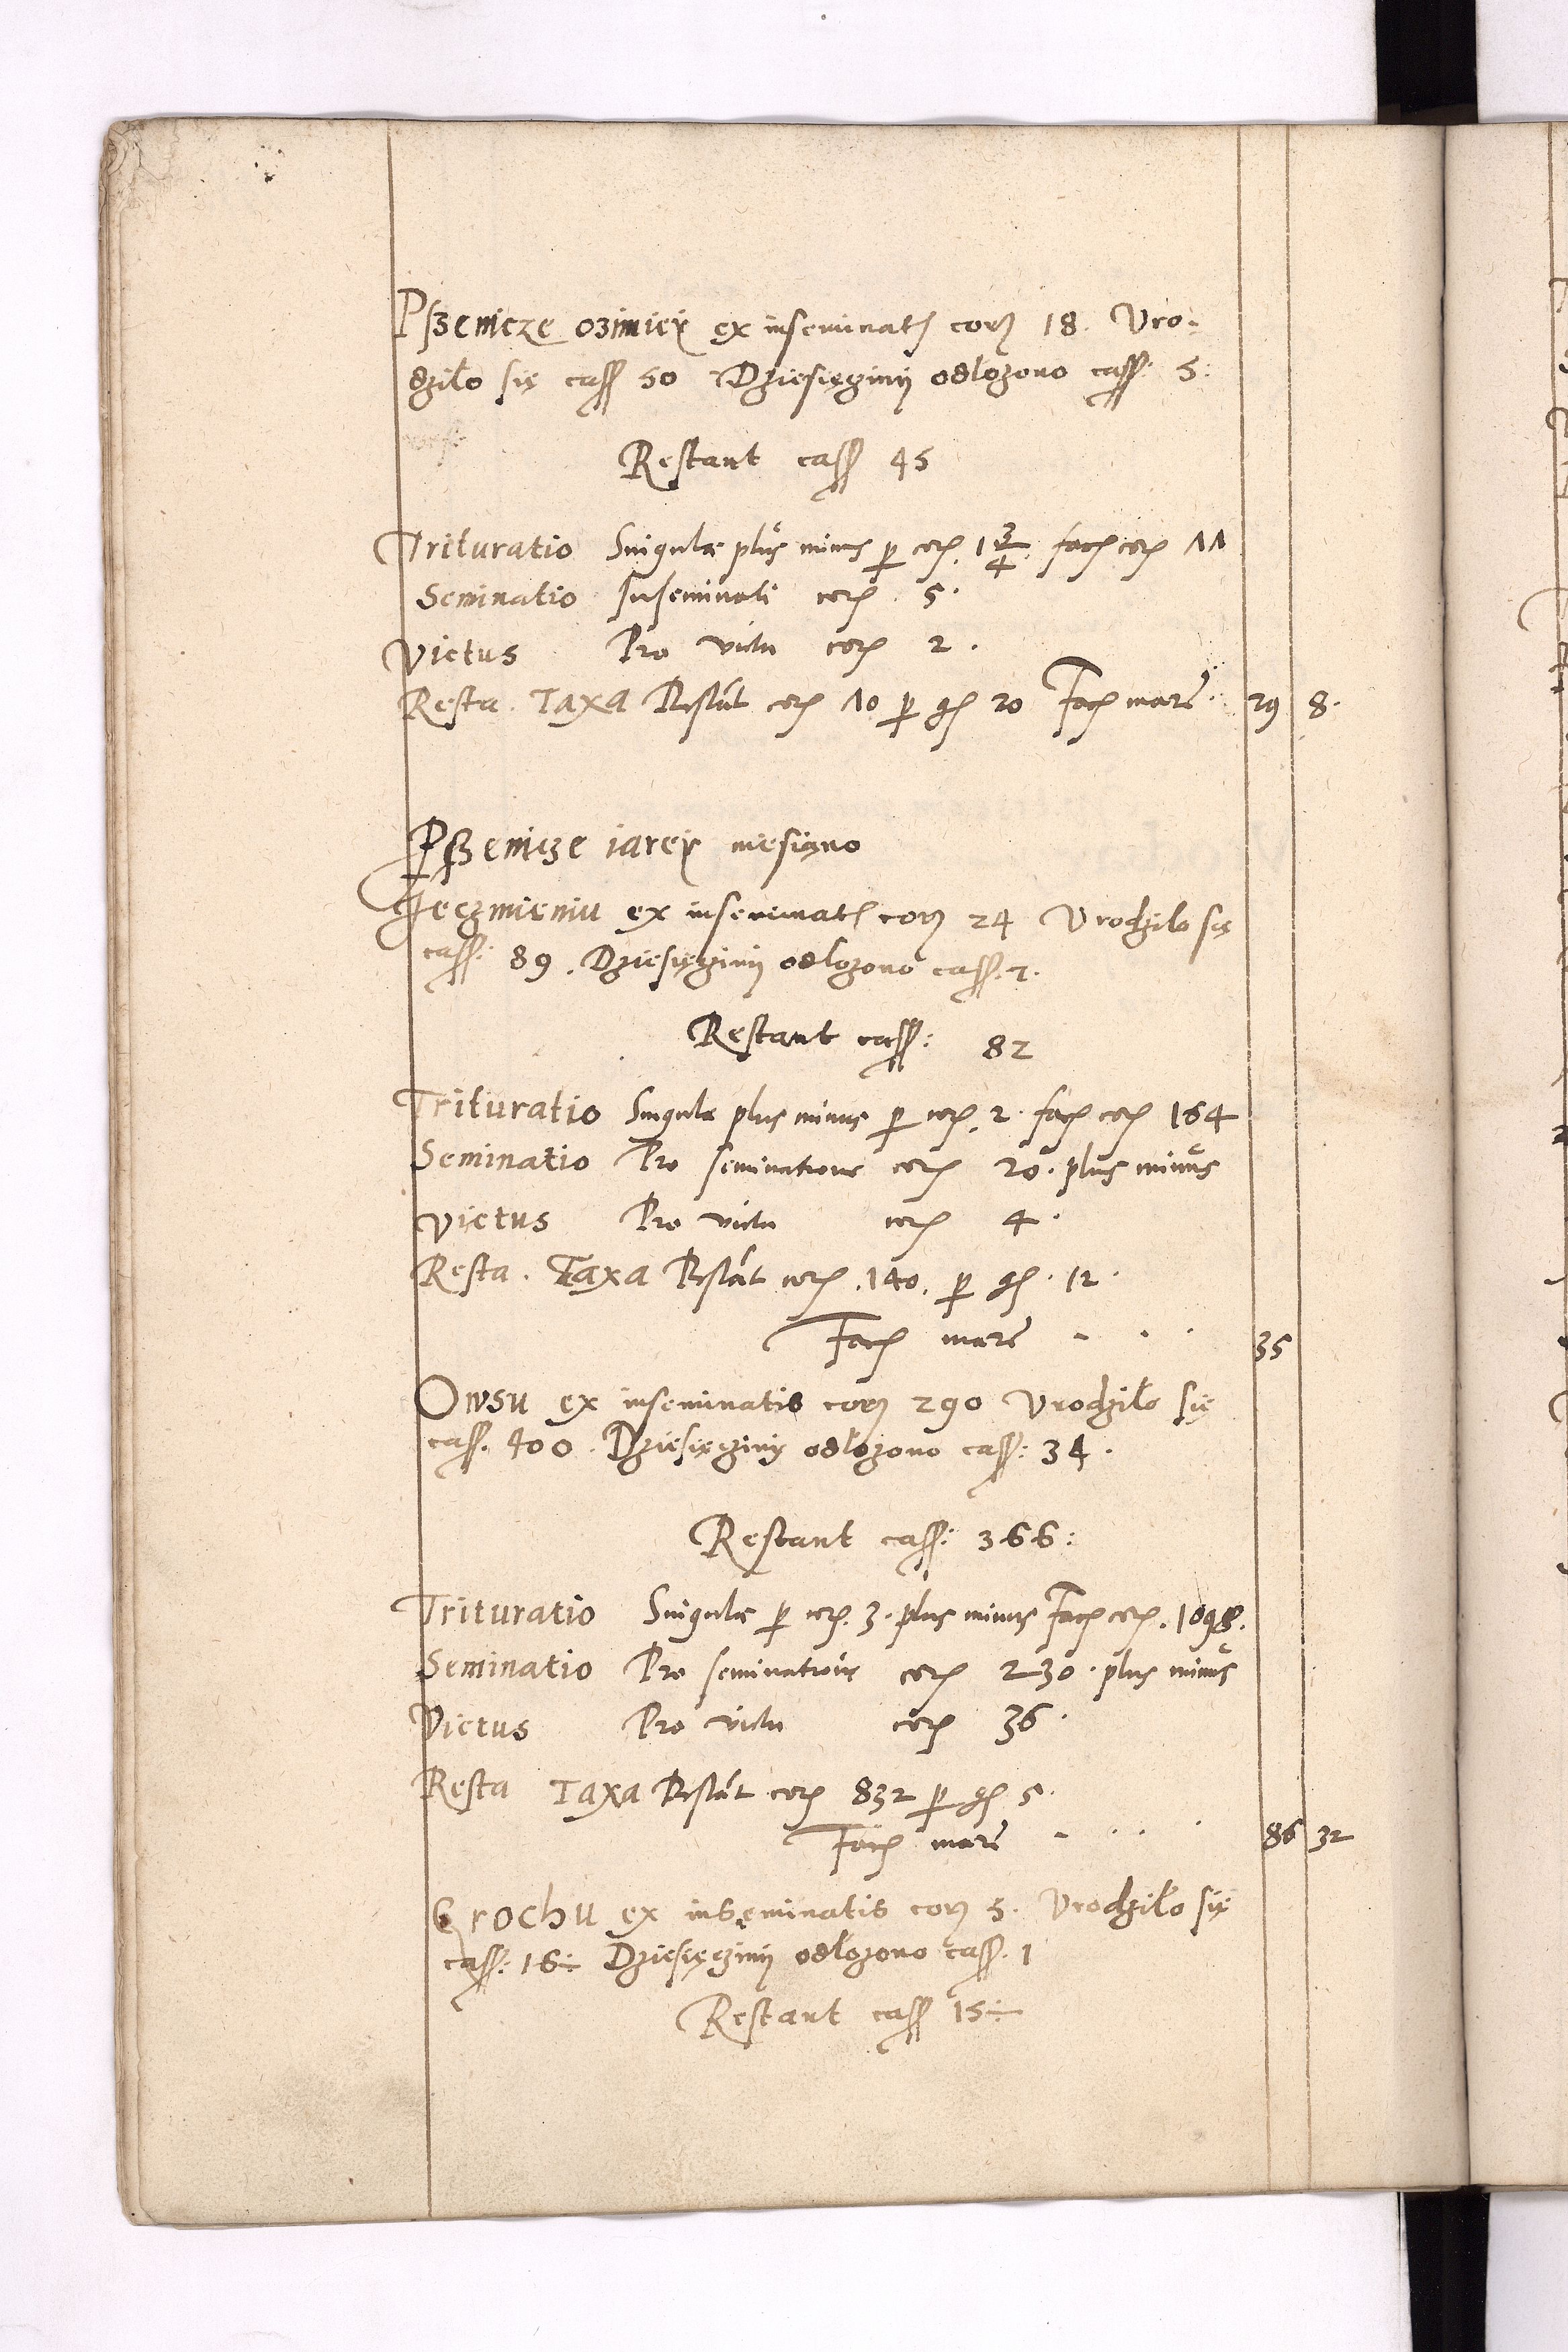 Pßenicze oзimieÿ ex inseminatis coris 18. Vro-
dziło się cass 50 Dziesięcinÿ odłozono cass: 5:
Restant cass 45
Trituratio Singulæ plus minus per coros 1 3/4 faciunt coros 77
Seminatio Inseminati cori 5.
Victus Pro victu cori 2.
Resta. Taxa Restant cori 70 per gros 20 Faciunt marcas 29 8.
Pßenicze iareÿ niesiąno
Jęczmieniu ex inseminatis coris 24 Vrodziło się
cass: 89. Dziesięcinÿ odłozono cass. 7.
Restant cass: 82
Trituratio Singulæ plus minus per coros 2. faciunt coros 164
Seminatio Pro seminatione cori 20. plus minus
Victus Pro victu cori 4.
Resta. Taxa Restant cori 140. per gros. 12.
Faciunt marcas 35
Owsu ex inseminatis coris 290 Vrodziło się
cass. 400. Dziesięcinÿ odłozono cass: 34.
Restant cass: 366:
Trituratio Singulæ per coros 3. plus minus Faciunt coros. 1098.
Seminatio Pro seminatione cori 230. plus minus
Victus Pro victu cori 36.
Resta Taxa Restant cori 832 per gros 5.
Faciunt marcas 86 32
Grochu ex inseminatis coris 5. Vrodziło się
cass: 16÷ Dziesięcinÿ odłozono cass. 1
Restant cass 15÷